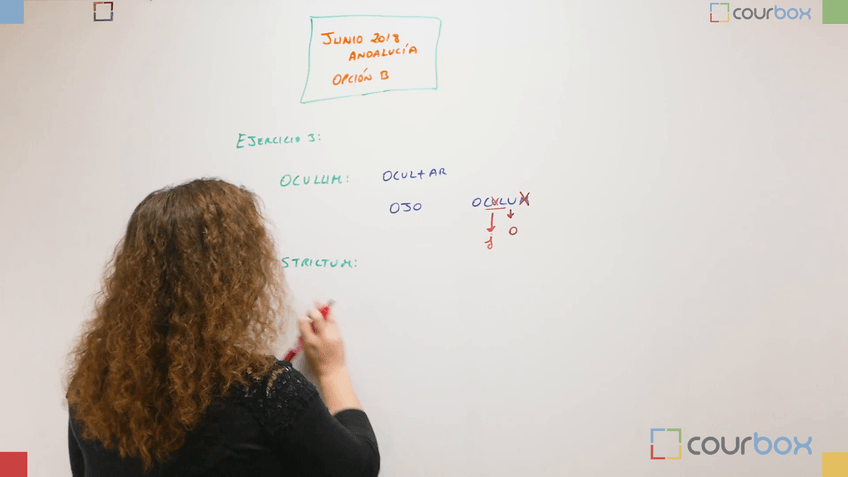 courbox
JUNIO 2018
ANDALUCÍA
OPCIÓN B
EJERCICIO 3:
OCULUM: OCULTAR
OJO OCULUM
j o
STRICTUM:
courbox